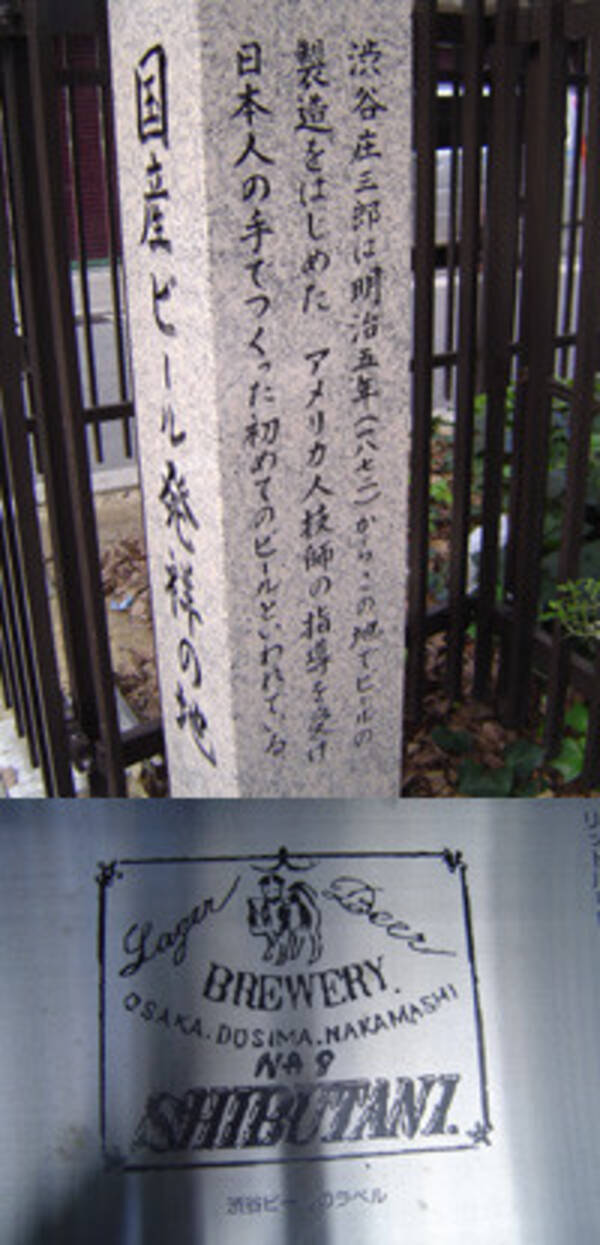 国産ビール発祥の地
渋谷庄三郎は明治五年(一八七二)からこの地でビールの
製造をはじめた アメリカ人技師の指導を受け
日本人の手でつくった初めてのビールといわれている
Lager Beer
BREWERY.
OSAKA.DOSIMA.NAKAMASHI
NA 9
SHIBUTANI.
渋谷ビールのラベル